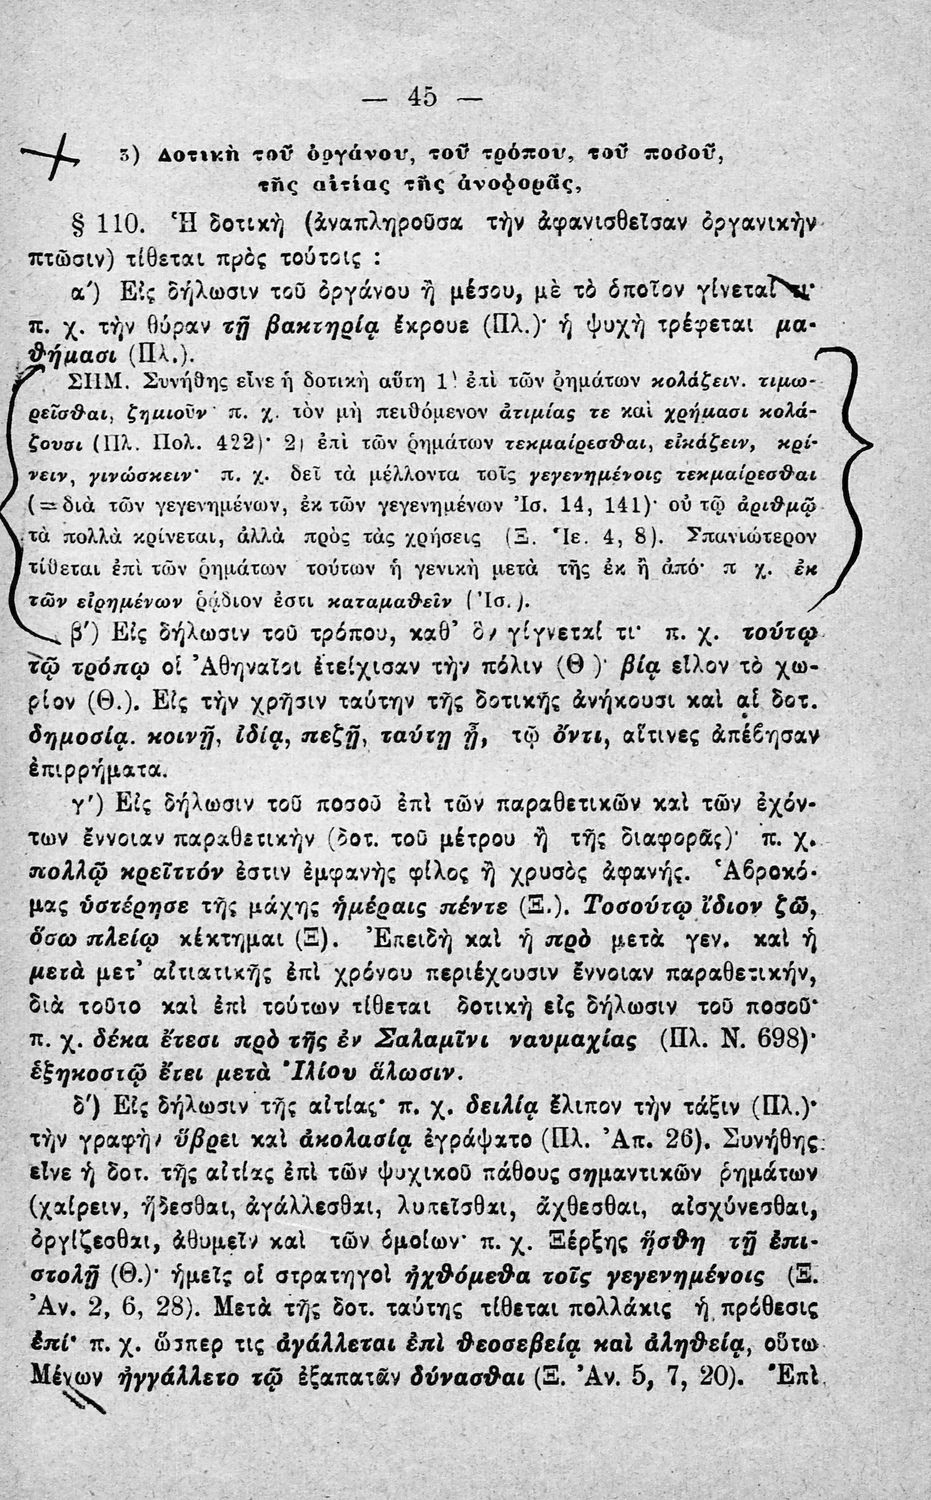 — 45 —
3) Δοτικὴ τοῦ ὀργάνου, τοῦ τρόπου, τοῦ ποσοῦ,
τῆς αἰτίας τῆς ἀνοφορᾶς,
§ 110. Ἡ δοτικὴ (ἀναπληροῦσα τὴν ἀφανισθεῖσαν ὀργανικὴν
πτῶσιν) τίθεται πρὸς τούτοις :
α΄) Εἰς δήλωσιν τοῦ ὀργάνου ἢ μέσου, μὲ τὸ ὁποῖον γίνεταί τι·
π. χ. τὴν θύραν τῇ βακτηρίᾳ ἔκρουε (Πλ.)· ἡ ψυχὴ τρέφεται μα-
θήμασι (Πλ.).
ΣΗΜ. Συνήθης εἶνε ἡ δοτικὴ αὕτη 1) ἐπὶ τῶν ῥημάτων κολάζειν. τιμω-
ρεῖσθαι, ζημιοῦν· π. χ. τὸν μὴ πειθόμενον ἀτιμίας τε καὶ χρήμασι κολά-
ζουσι (Πλ. Πολ. 422)· 2) ἐπὶ τῶν ῥημάτων τεκμαίρεσθαι, εἰκάζειν, κρί-
νειν, γινώσκειν· π. χ. δεῖ τὰ μέλλοντα τοῖς γεγενημένοις τεκμαίρεσθαι
(= διὰ τῶν γεγενημένων, ἐκ τῶν γεγενημένων Ἰσ. 14, 141)· οὐ τῷ ἀριθμῷ
τὰ πολλὰ κρίνεται, ἀλλὰ πρὸς τὰς χρήσεις (Ξ. Ἱε. 4, 8). Σπανιώτερον
τίθεται ἐπὶ τῶν ῥημάτων τούτων ἡ γενικὴ μετὰ τῆς ἐκ ἢ ἀπό· π χ. ἐκ
τῶν εἰρημένων ῥᾴδιον ἐστι καταμαθεῖν (Ἰσ.).
β΄) Εἰς δήλωσιν τοῦ τρόπου, καθ᾽ ὃν γίγνεταί τι· π. χ. τούτῳ
τῷ τρόπῳ οἱ Ἀθηναῖοι ἐτείχισαν τὴν πόλιν (Θ )· βίᾳ εἷλον τὸ χω-
ρίον (Θ.). Εἰς τὴν χρῆσιν ταύτην τῆς δοτικῆς ἀνήκουσι καὶ αἱ δοτ.
δημοσίᾳ. κοινῇ, ἰδίᾳ, πεζῇ, ταύτῃ ᾗ, τῷ ὄντι, αἵτινες ἀπέβησαν
ἐπιρρήματα.
γ΄) Εἰς δήλωσιν τοῦ ποσοῦ ἐπὶ τῶν παραθετικῶν καὶ τῶν ἐχόν-
των ἔννοιαν παραθετικὴν (δοτ. τοῦ μέτρου ἢ τῆς διαφορᾶς)· π. χ.
πολλῷ κρεῖττόν ἐστιν ἐμφανὴς φίλος ἢ χρυσὸς ἀφανής. Ἁβροκό-
μας ὑστέρησε τῆς μάχης ἡμέραις πέντε (Ξ.). Τοσούτῳ ἴδιον ζῶ,
ὅσῳ πλείῳ κέκτημαι (Ξ). Ἐπειδὴ καὶ ἡ πρὸ μετὰ γεν. καὶ ἡ
μετὰ μετ᾽ αἰτιατικῆς ἐπὶ χρόνου περιέχουσιν ἔννοιαν παραθετικήν,
διὰ τοῦτο καὶ ἐπὶ τούτων τίθεται δοτικὴ εἰς δήλωσιν τοῦ ποσοῦ·
π. χ. δέκα ἔτεσι πρὸ τῆς ἐν Σαλαμῖνι ναυμαχίας (Πλ. Ν. 698)·
ἑξηκοστῷ ἔτει μετὰ Ἰλίου ἅλωσιν.
δ΄) Εἰς δήλωσιν τῆς αἰτίας· π. χ. δειλίᾳ ἔλιπον τὴν τάξιν (Πλ.)·
τὴν γραφὴν ὕβρει καὶ ἀκολασίᾳ ἐγράψατο (Πλ. Ἀπ. 26). Συνήθης
εἶνε ἡ δοτ. τῆς αἰτίας ἐπὶ τῶν ψυχικοῦ πάθους σημαντικῶν ῥημάτων
(χαίρειν, ἥδεσθαι, ἀγάλλεσθαι, λυπεῖσθαι, ἄχθεσθαι, αἰσχύνεσθαι,
ὀργίζεσθαι, ἀθυμεῖν καὶ τῶν ὁμοίων· π. χ. Ξέρξης ἥσθη τῇ ἐπι-
στολῇ (Θ.)· ἡμεῖς οἱ στρατηγοὶ ἠχθόμεθα τοῖς γεγενημένοις (Ξ.
Ἀν. 2, 6, 28). Μετὰ τῆς δοτ. ταύτης τίθεται πολλάκις ἡ πρόθεσις
ἐπί· π. χ. ὥσπερ τις ἀγάλλεται ἐπὶ θεοσεβείᾳ καὶ ἀληθείᾳ, οὕτω
Μένων ἠγγάλλετο τῷ ἐξαπατᾶν δύνασθαι (Ξ. Ἀν. 5, 7, 20). Ἐπὶ